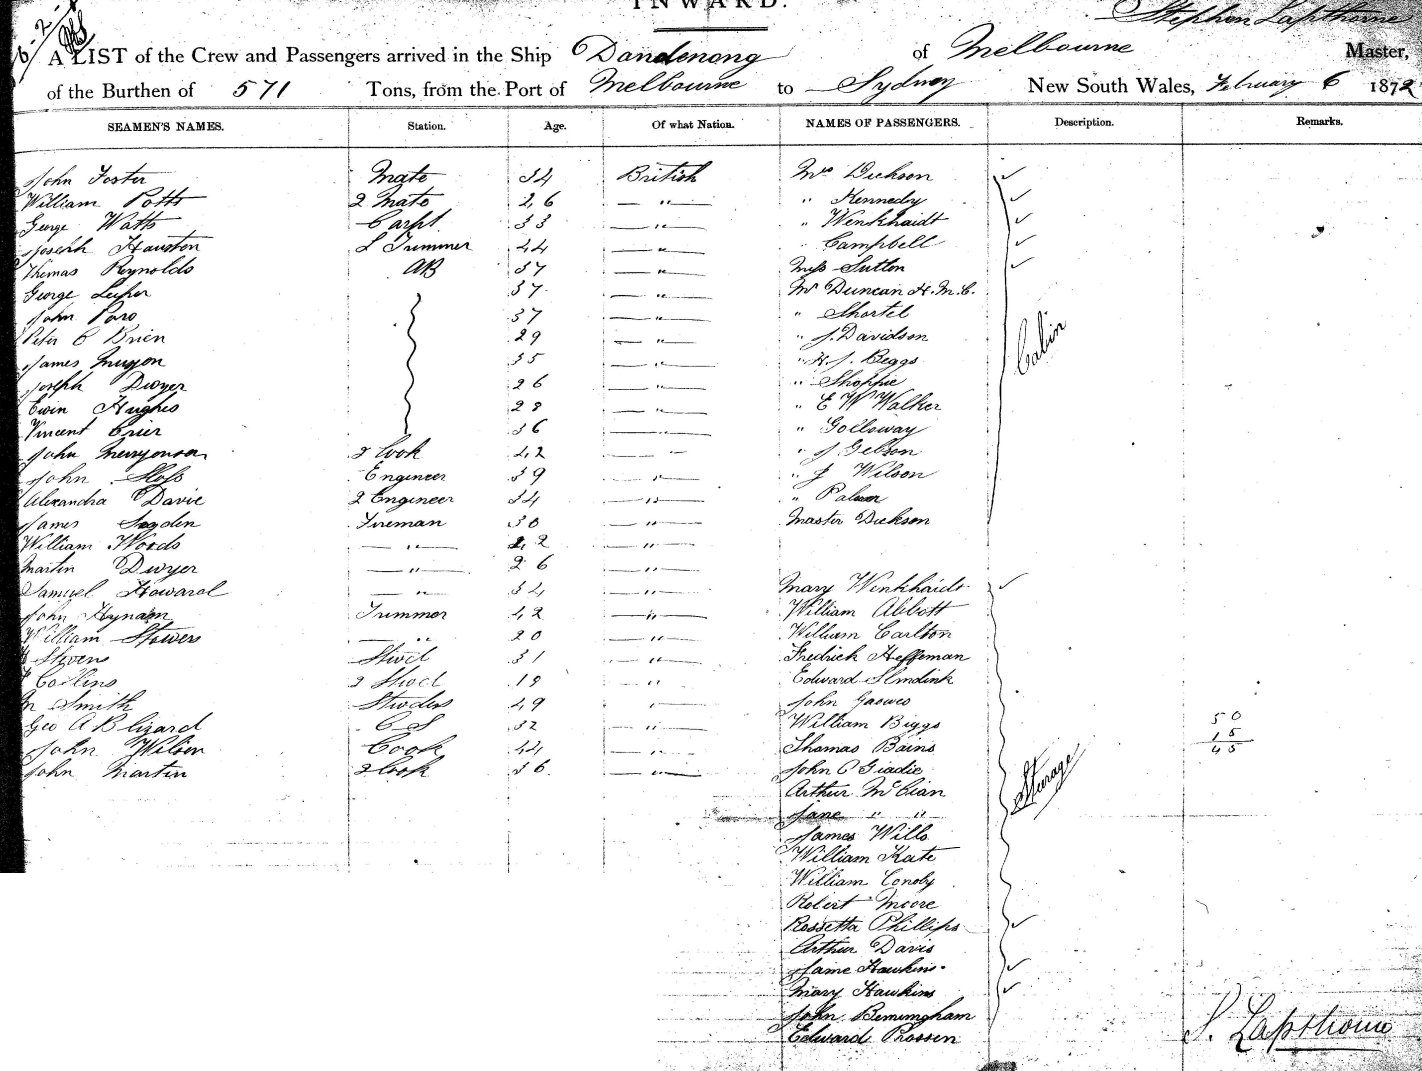 INWARD.
6-2-
Stephen Lapthorne
A LIST of the Crew and Passengers arrived in the Ship Dandenong of Melbourne Master,
of the Burthen of 571 Tons, from the Port of Melbourne to Sydney New South Wales, February 6 1872
SEAMEN'S NAMES. Station. Age. Of what Nation. NAMES OF PASSENGERS. Description. Remarks.
John Foster Mate 34 British Mrs Dickson ✓
William Potts 2 Mate 26 — " — " Kennedy ✓
George Watts Carpt 33 — " — " Winkhaidt ✓
Joseph Hauston L Trimmer 44 — " — " Campbell ✓
Thomas Reynolds AB 37 — " — Miss Sutton ✓
George 37 — " — Mr Duncan H.M.C.
John Poro 37 — " — " Shortel
Peter O Brien 29 — " — " J. Davidson
James 35 — " — " H. J. Beggs
Joseph Dwyer 26 — " — " Shoppie
Ewin Hughes 28 — " — " E W Walker
Vincent Crier 36 — " Golloway
John Merryonson 2 Cook 42 — " — " J Gebson
John Sloss Engineer 39 — " — " J Wilson
Alexandra Davie 2 Engineer 34 — " — "
James Sogden Fireman 30 — " — Master Dickson
Cabin
William Woods — " — 22 — " —
Martin Dwyer — " — 26 — " —
Samuel Howard — " — 34 — " — Mary Winkhaidt ✓
John Hynam Trimmer 42 — " — William Abbott
William Stowers — " — 20 — " — William Carlton
Stevens Stwd 31 — " — Fredrick Heffernan
Collins 2 Stwd 19 — " — Edward Slmdink
M Smith Stwdess 49 — " — John Gaowes
Geo A Blizard C S 32 — " — William Biggs 50
John Wilson Cook 44 — " — Thomas Bains 15
John Martin 2 Cook 36 — " — John O Giadie 45
Arthur McCian
Jane " "
Sturage
James Wills
William Kate
William Conoby
Robert Moore
Rossetta Phillips ✓
Arthur Davis
Jane Hawkins ✓
Mary Hawkins ✓
John Bemimgham
Edward Prossen
S. Lapthorne